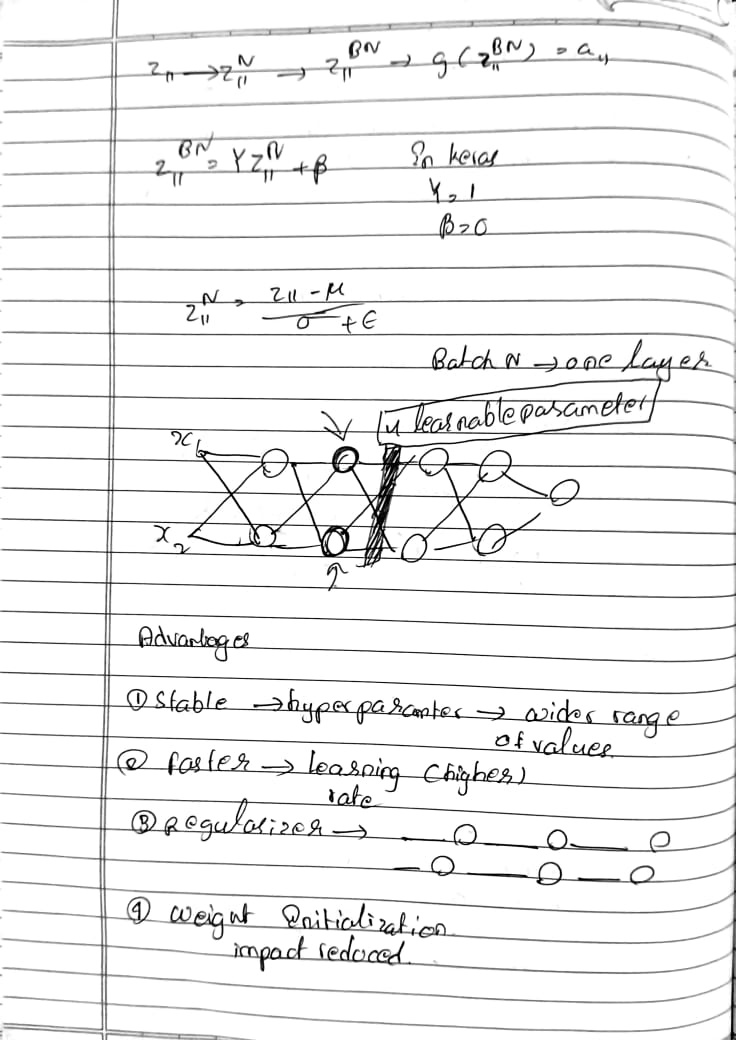 z₁₁ → z₁₁ᴺ → z₁₁ᴮᴺ → g(z₁₁ᴮᴺ) = a₁₁
z₁₁ᴮᴺ = γz₁₁ᴺ + β
In keras
γ = 1
β = 0
z₁₁ᴺ = (z₁₁ - μ) / (σ + ϵ)
Batch N → one layer
4 learnable parameter
x₁
x₂
Advantages
① Stable → hyperparamter → wider range
of values
② faster → learning (higher)
rate
③ Regularizer →
④ weight Initialization
impact reduced.